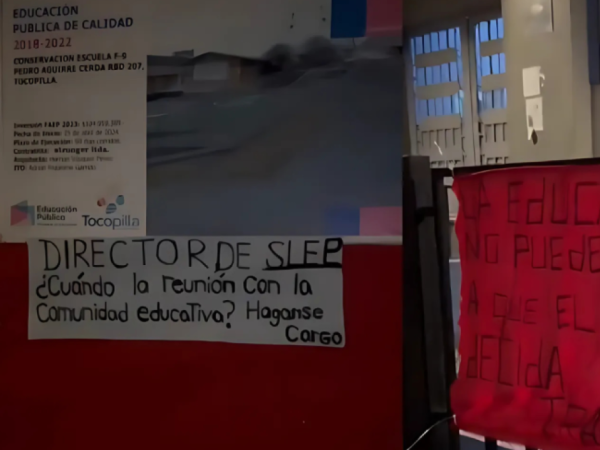 EDUCACIÓN
PÚBLICA DE CALIDAD
2018-2022
CONSERVACION ESCUELA E-9
PEDRO AGUIRRE CERDA RBD 207,
TOCOPILLA
Inversion FAEP 2023:
Fecha de Inicio: de abril de 2024
Plazo de Ejecución: 60 días corridos
Contratista: stronger ltda.
Educación
Pública
Tocopilla
DIRECTOR DE SLEP
¿Cuándo la reunión con la
Comunidad educativa? Haganse
Cargo
LA EDUCA
NO PUEDE
A QUE EL
DECIDA
TRA